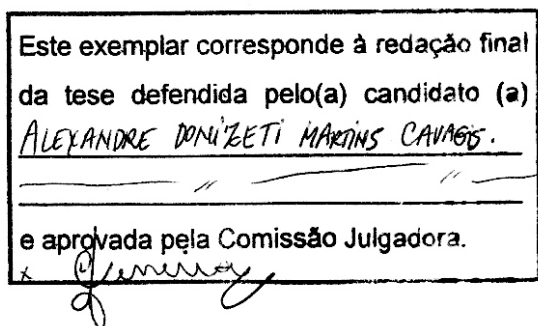 Este exemplar corresponde à redação final
da tese defendida pelo(a) candidato (a)
ALEXANDRE DONIZETI MARTINS CAVAGIS.
e aprovada pela Comissão Julgadora.